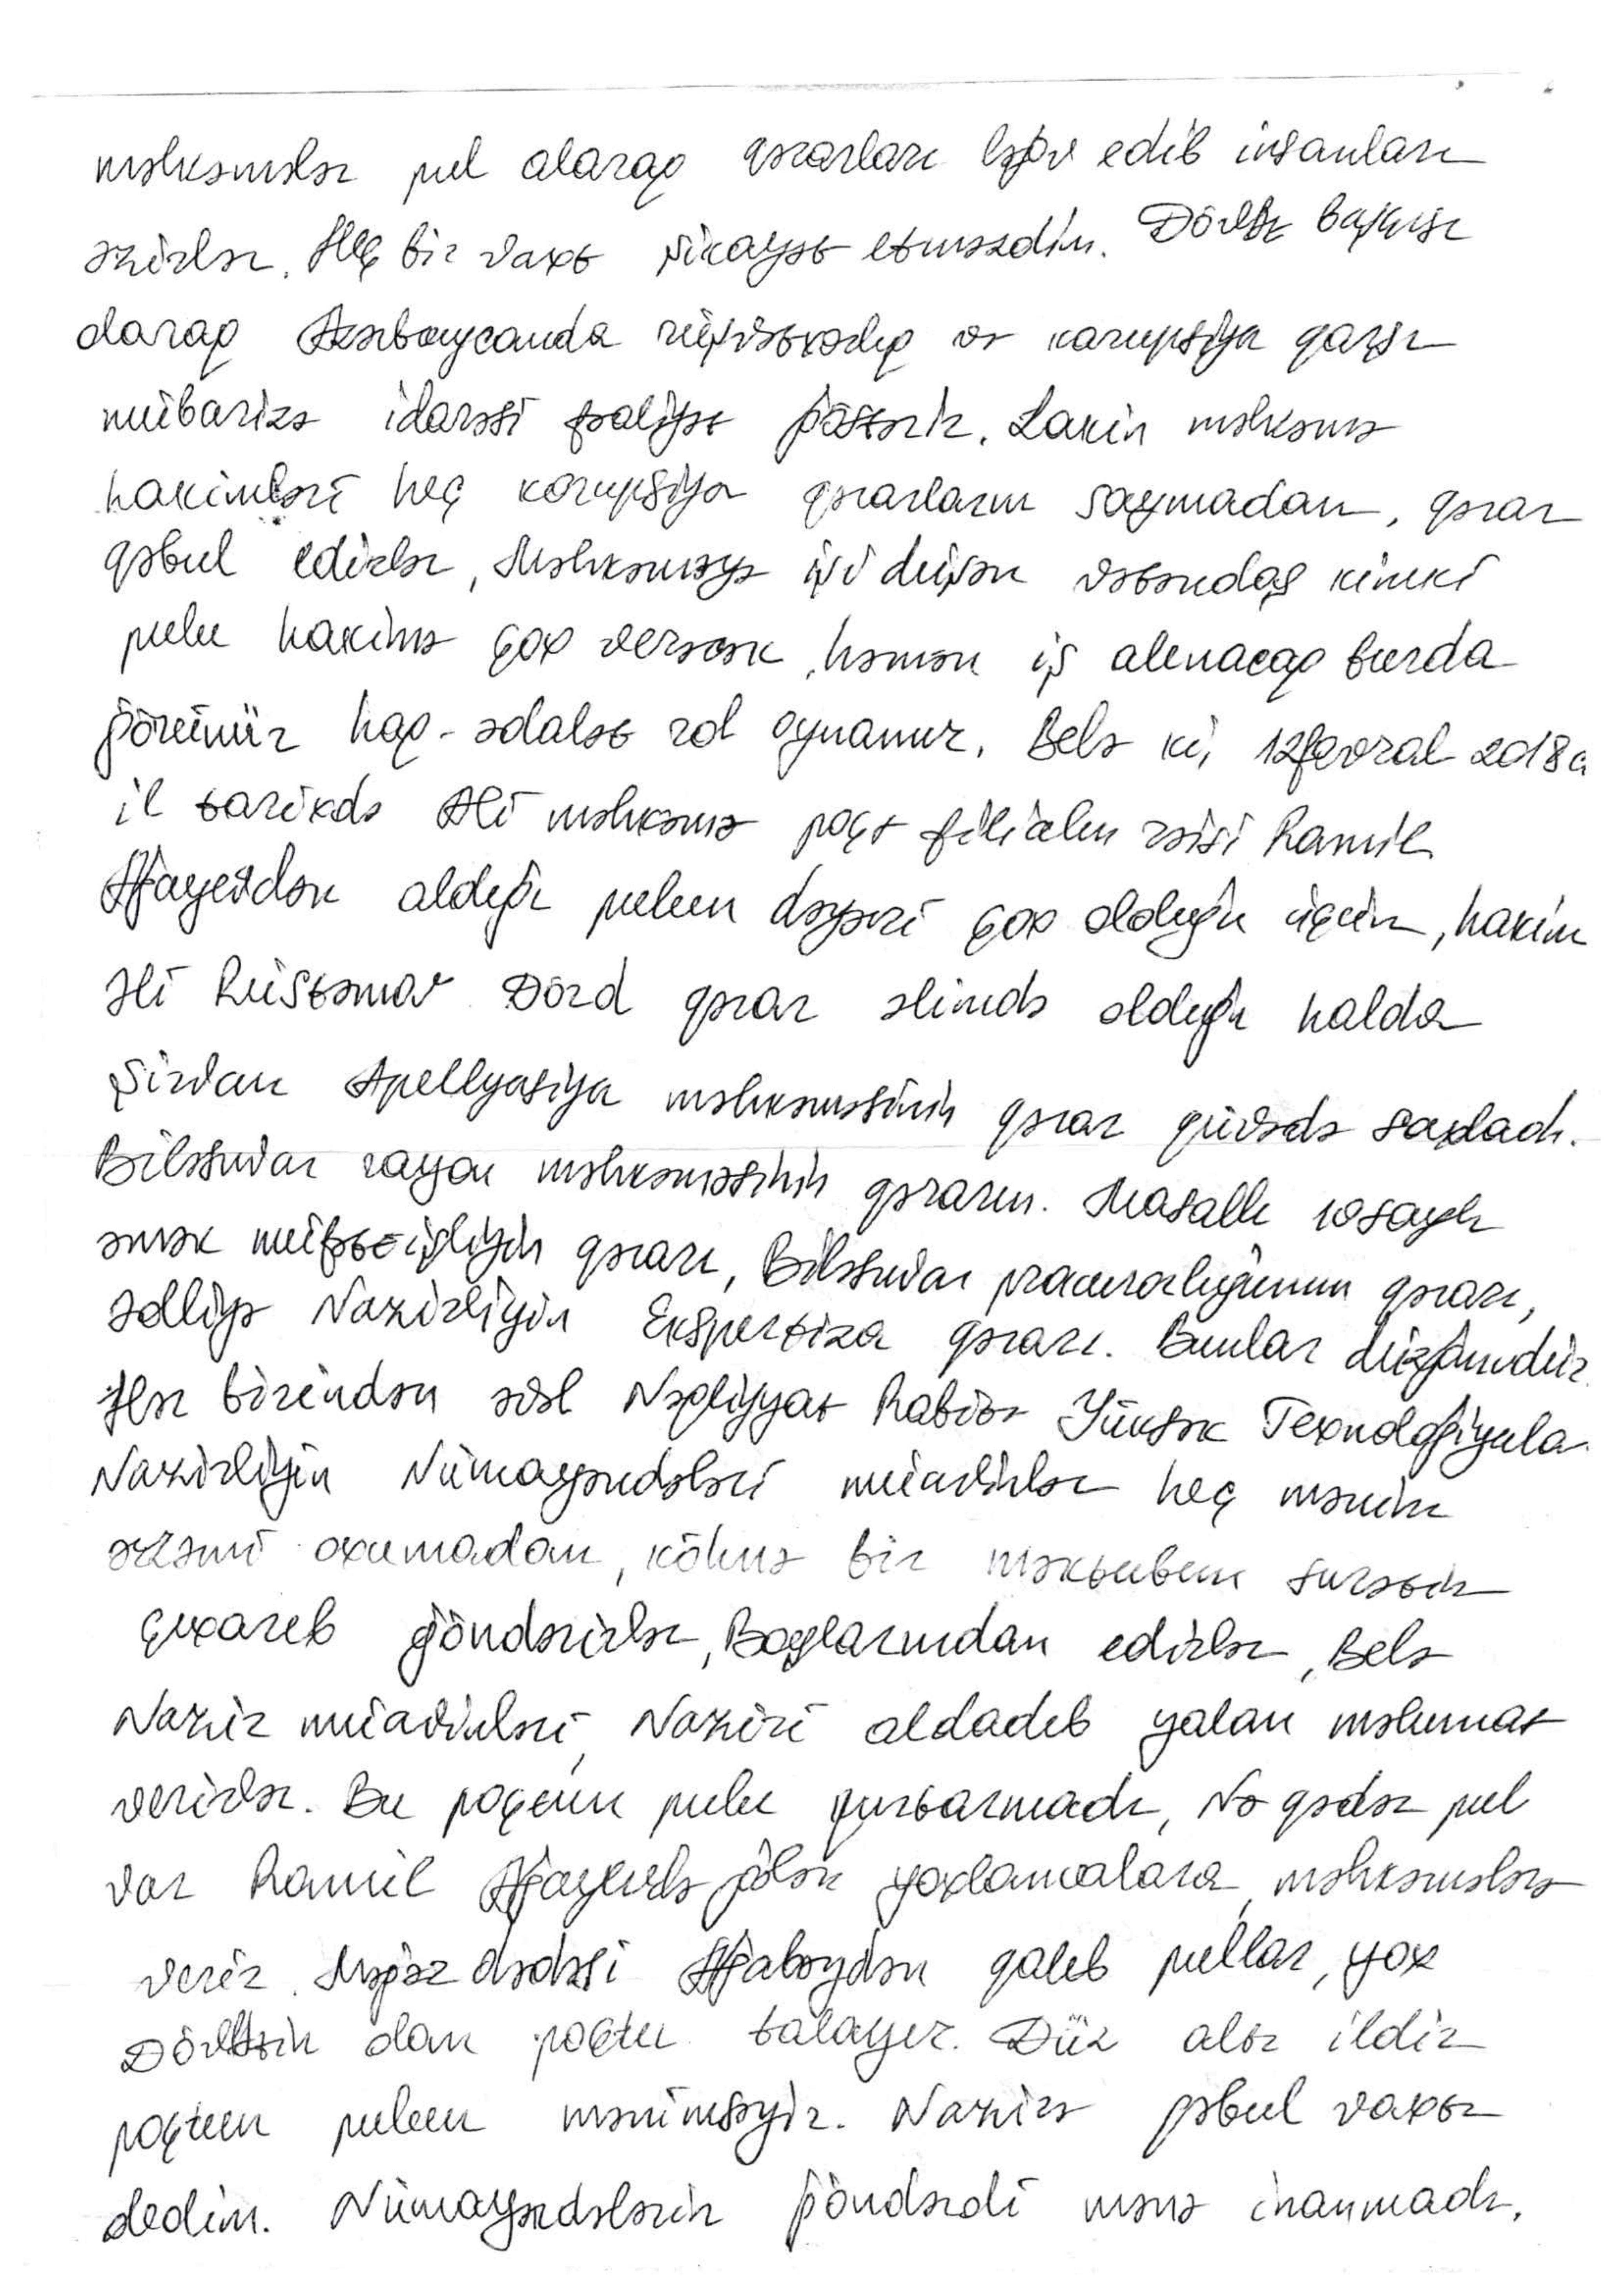 məhkəmələr pul alaraq qərarları ləğv edib insanları
əzirlər. Heç bir vaxt şikayət etməzdim. Dövlət başçısı
olaraq Azərbaycanda rüşvətxorluq və karupsiya qarşı
mübarizə idarəsi fəaliyət göstərir. Lakin məhkəmə
hakimləri heç korupsiya qərarların saymadan, qərar
qəbul edirlər, Məhkəməyə işi düşən vətəndaş kimki
pulu hakimə çox verəcək, həmən iş alınacaq burda
görünür haq-ədalət rol oynamır. Belə ki, 12 fevral 2018ci
il tarixdə Ali məhkəmə poçt filialın rəisi Ramil
Ağayevdən aldığı pulun dəyəri çox olduğu üçün, hakim
Əli Rüstəmov Dörd qərar əlimdə olduğu halda
Şirvan Apellyasiya məhkəməsinin qərar qüvədə saxladı.
Biləsuvar rayon məhkəməsinin qərarın. Masallı 10 saylı
əmək müfəttişliyin qərarı, Biləsuvar prakurorluğunun qərarı,
Ədliyə Nazirliyin Ekspertiza qərarı. Bunlar düzgündür.
Hər birindən əvəl Nəqliyyat Rabitə Yüksək Texnologiyala
Nazirliyin Nümayəndələri müavinlər heç mənim
ərzəmi oxumadan, köhnə bir məktubun surətin
çıxarıb göndərirlər, Boylarından edirlər, Belə
Nazir müavinləri, Naziri aldadıb yalan məlumat
verirlər. Bu poçtun pulu qurtarmadı, Nə qədər pul
var Ramil Ağayevdə gələn yoxlamalara, məhkəmələrə
verir. Məgər dədəsi Ağabəydən qalıb pullar, yox
Dövlətin olan poçtu talayır. Düz altı ildir
poçtun pulun mənimsəyir. Nazirə qəbul vaxtı
dedim. Nümayəndələrin göndərdi mənə inanmadı.